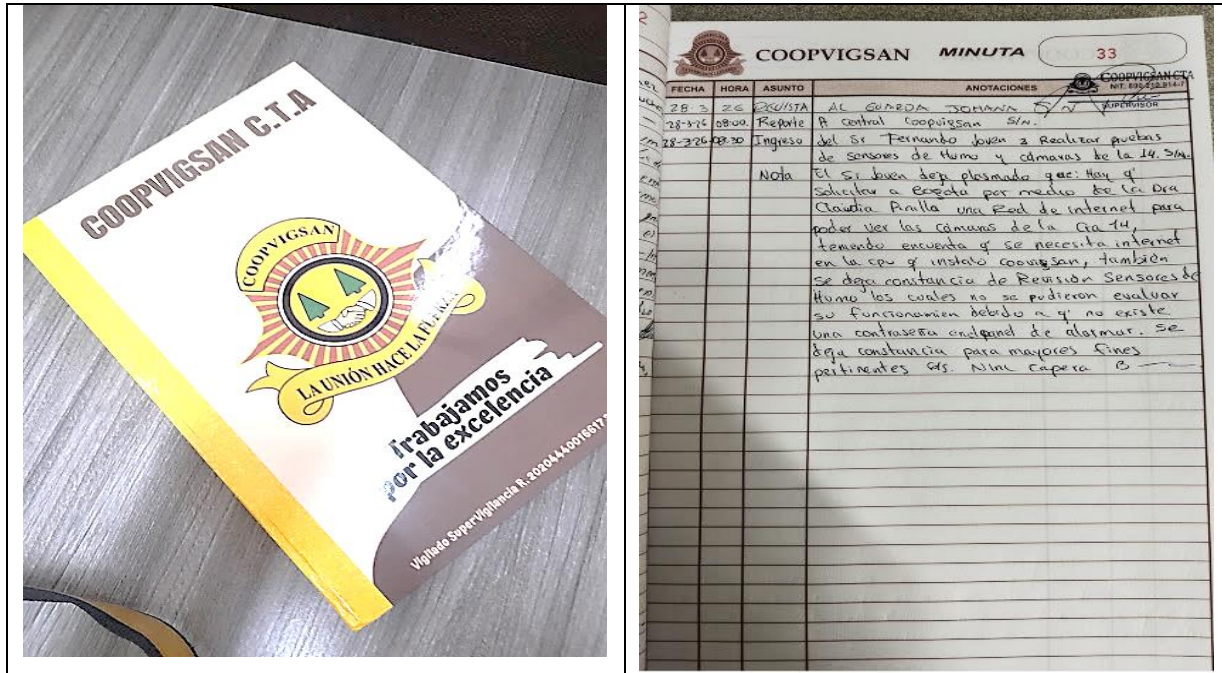 COOPVIGSAN C.T.A
COOPVIGSAN
LA UNIÓN HACE LA FUERZA
Trabajamos
por la excelencia
Vigilado SuperVigilancia R.
COOPVIGSAN MINUTA 33
COOPVIGSAN CTA
SUPERVISOR
FECHA HORA ASUNTO ANOTACIONES
28-3 26 REVISTA AL GUARDA JOHANA S/N
28-3-26 08:00. Reporte A central Coopvigsan S/N.
28-3-26 08:30 Ingreso del Sr Fernando Joven a Realizar pruebas
de sensores de Humo y cámaras de la 14. S/N.
Nota El Sr Joven deja plasmado que: Hay q'
Solicitar a Bogotá por medio de la Dra
Claudia una Red de internet para
poder ver las cámaras de la Cra 14,
teniendo encuenta q' se necesita internet
en la cpu q' instalo también
se deja constancia de Revisión Sensores de
Humo los cuales no se pudieron evaluar
su funcionamien debido a q' no existe
una contraseña panel de alarmas. Se
deja constancia para mayores fines
pertinentes Capera B